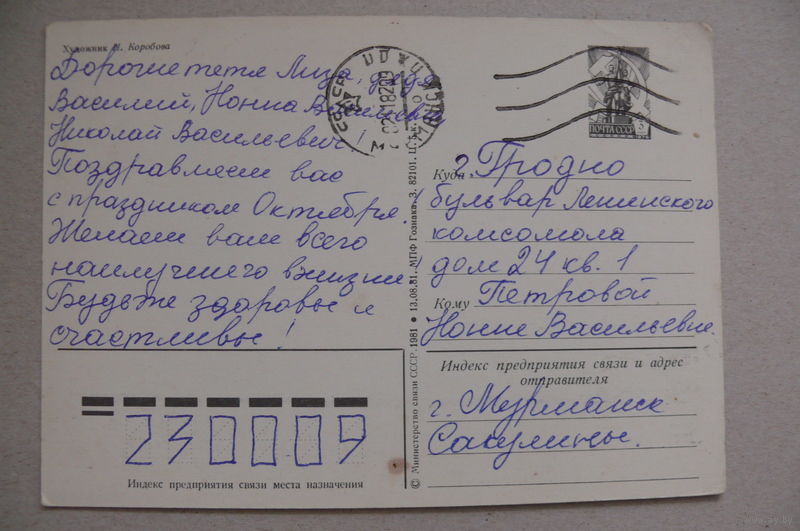 Художник Н. Коробова
Дорогие тетя Лиза, дядя
Василий, Нонна Васильевна,
Николай Васильевич!
Поздравляем вас
с праздником Октября!
Желаем вам всего
наилучшего в жизни!
Будьте здоровы и
счастливы!
230009
Индекс предприятия связи места назначения
© Министерство связи СССР. 1981 • 13.08.81. МПФ Гознака. З. 82101. Ц.
СССР
ПОЧТА СССР
Куда г. Гродно
бульвар Ленинского
комсомола
дом 24 кв. 1
Кому Петровой
Нонне Васильевне.
Индекс предприятия связи и адрес
отправителя
г. Мурманск
Сакулины.